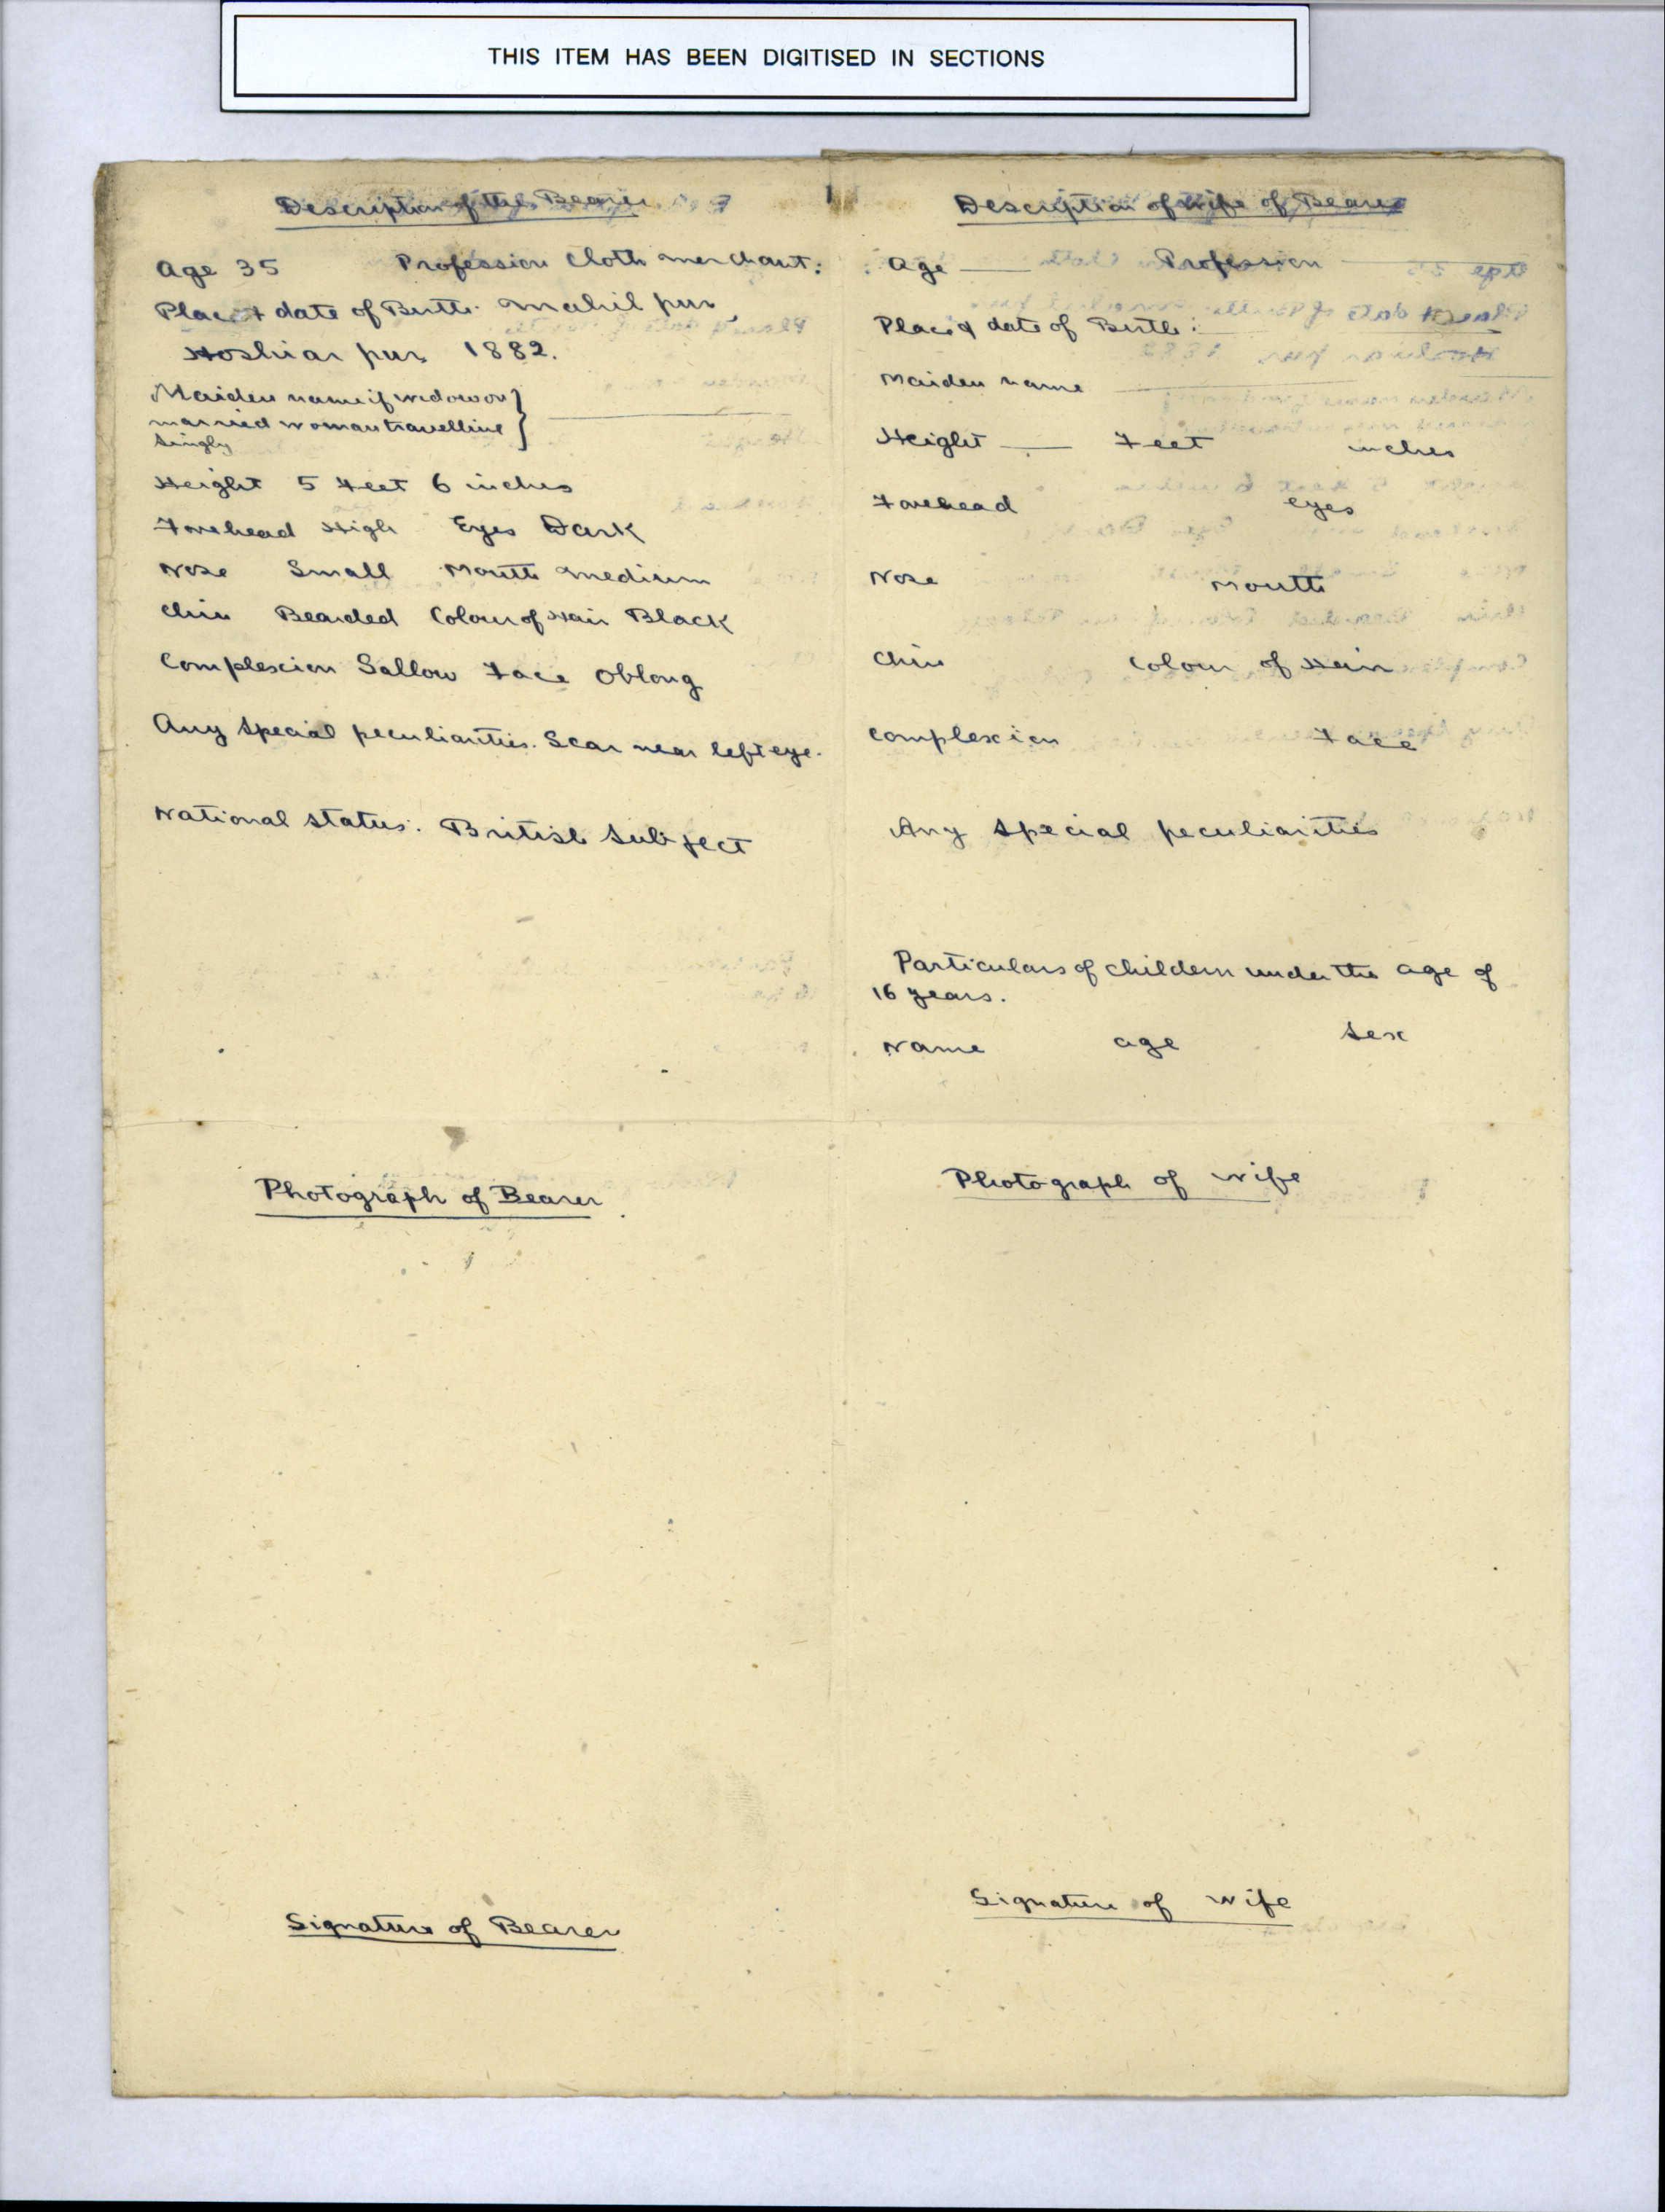 THIS ITEM HAS BEEN DIGITISED IN SECTIONS
Description of the Bearer
Age 35 Profession Cloth merchant:
Place & date of Birth. Mahil pur
Hoshiar pur 1882.
Maiden name if widow or
married woman travelling
singly
Height 5 Feet 6 inches
Forehead High Eyes Dark
Nose Small Mouth medium
Chin Bearded Colour of Hair Black
Complexion Sallow Face Oblong
Any special peculiarities. Scar near left eye.
National status: British Subject
Photograph of Bearer
Signature of Bearer
Description of Wife of Bearer
Age Profession
Place & date of Birth:
Maiden name
Height Feet inches
Forehead eyes
Nose Mouth
Chin Colour of Hair
Complexion Face
Any special peculiarities
Particulars of childern under the age of
16 years.
Name age sex
Photograph of wife
Signature of wife